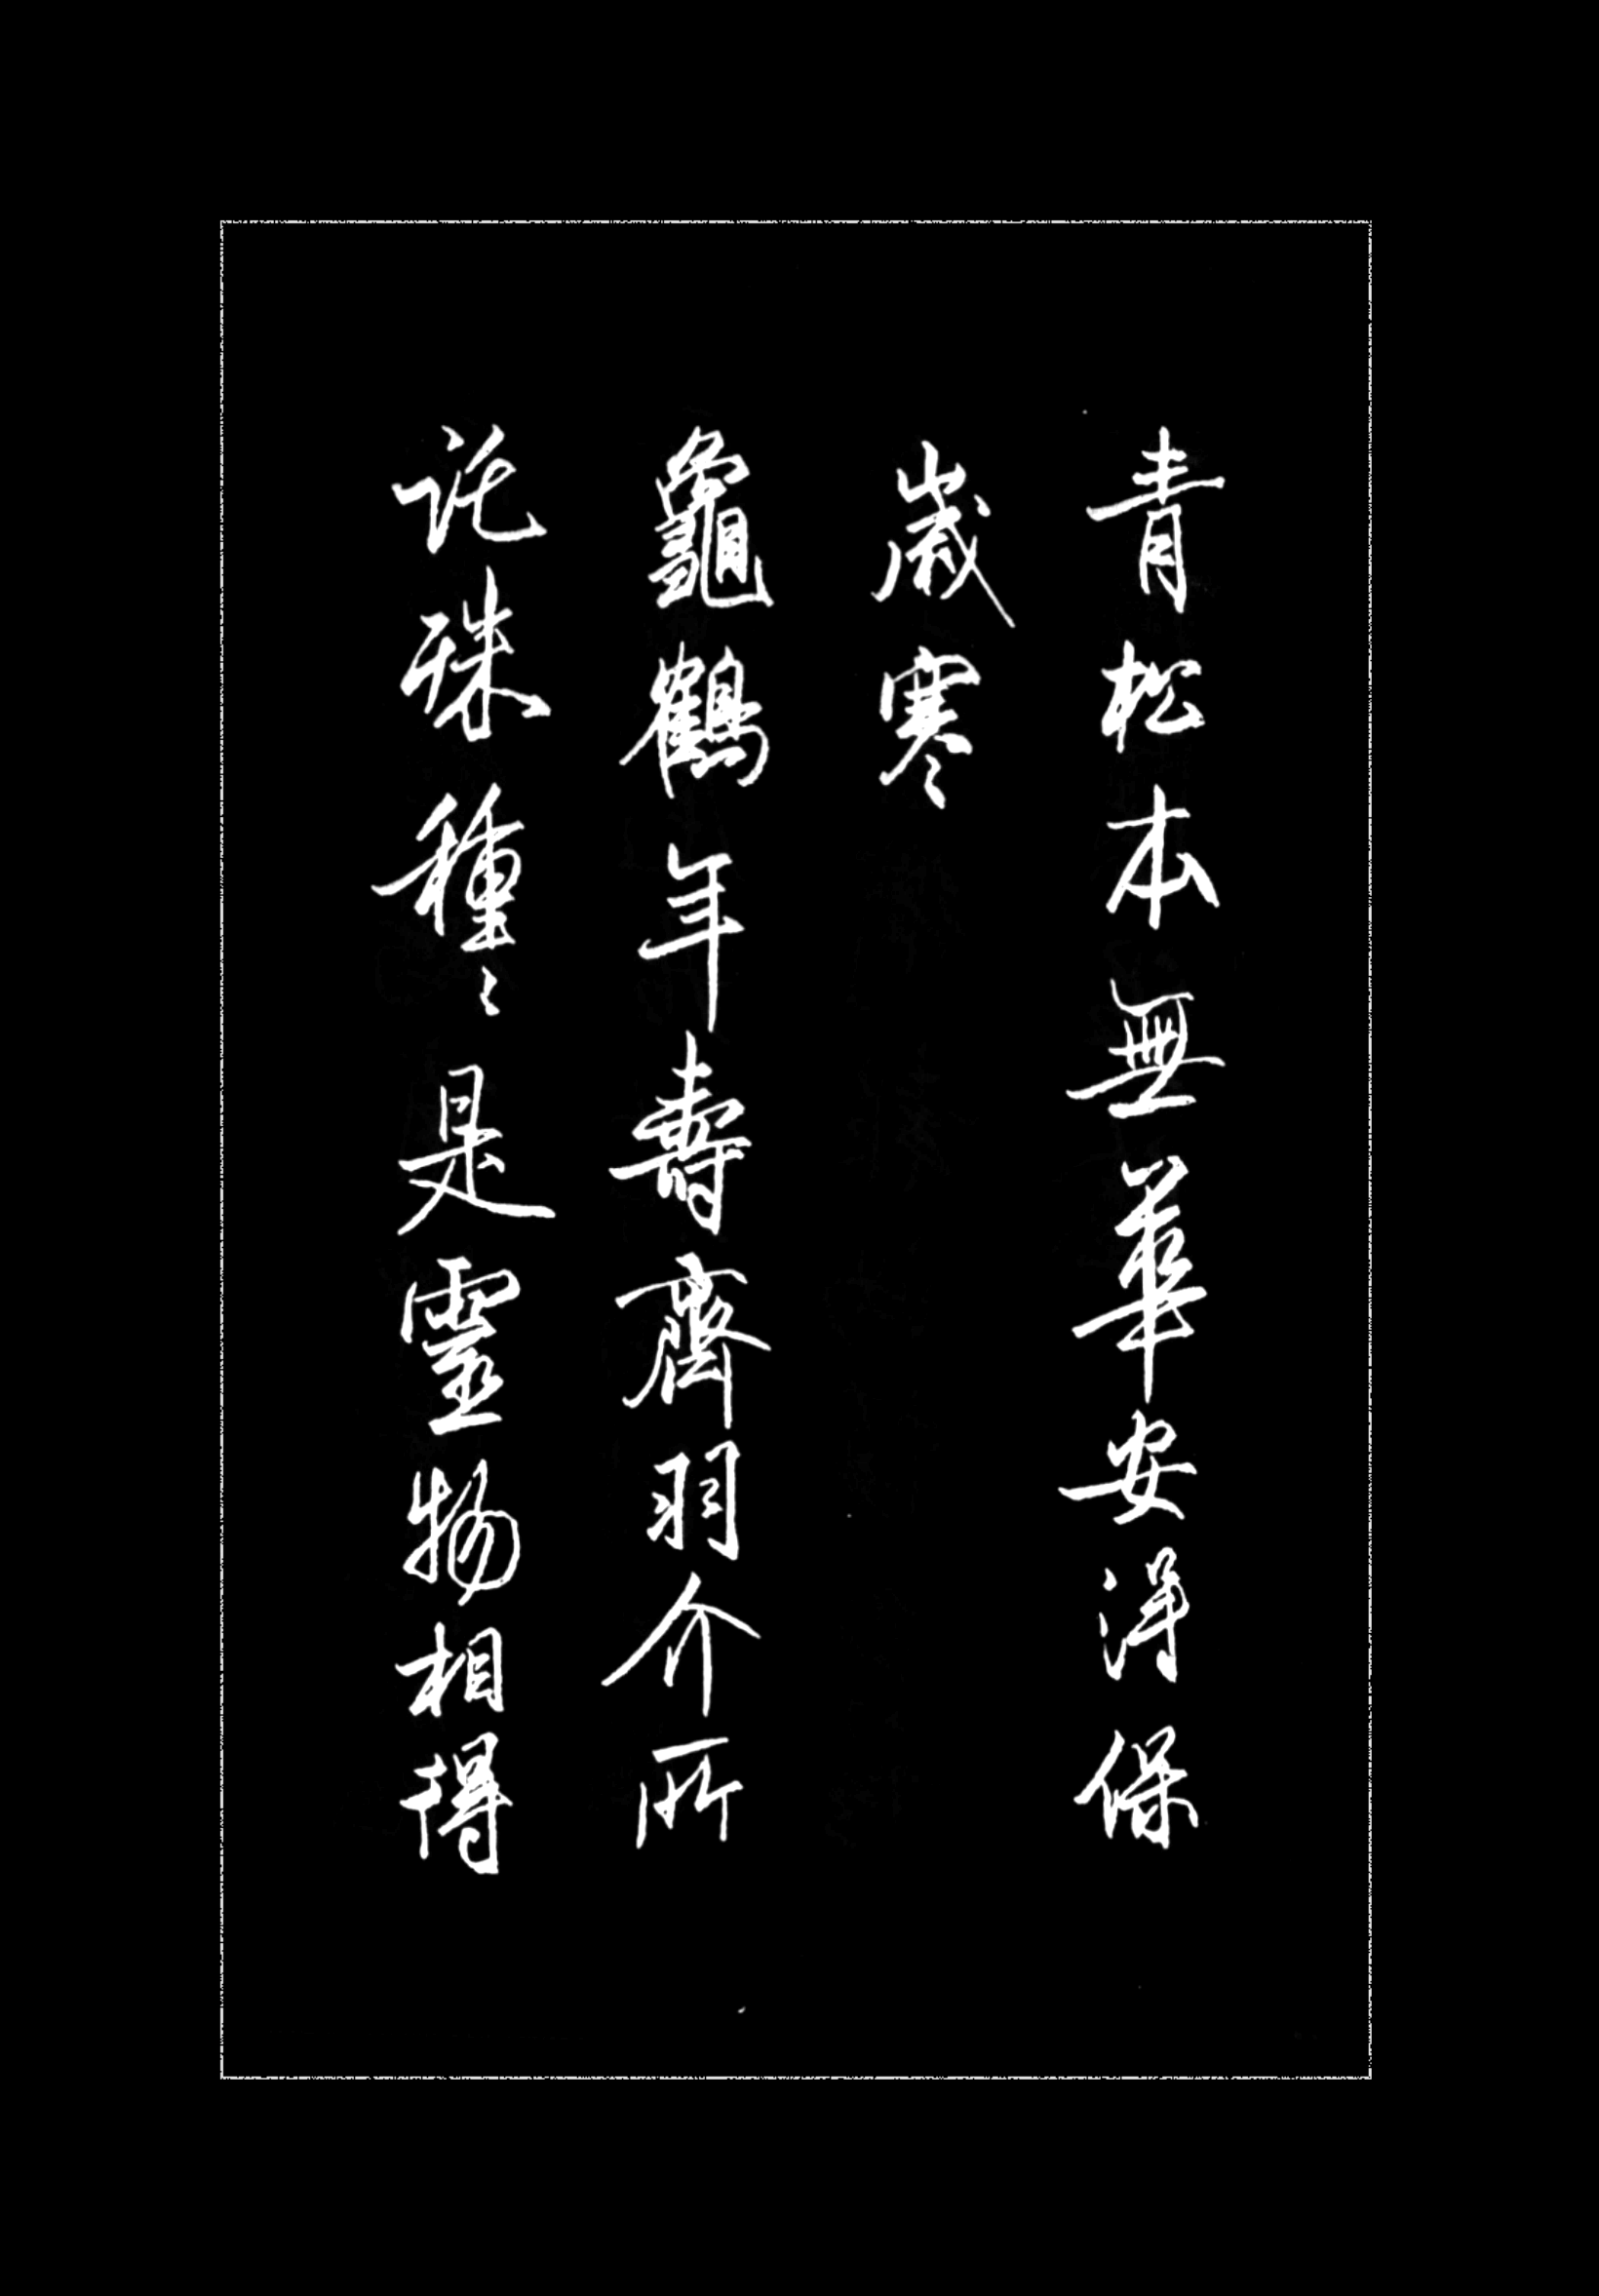 青松本無華安得保
歲寒
龜鶴年壽齊羽介所
託殊種〻是靈物相得